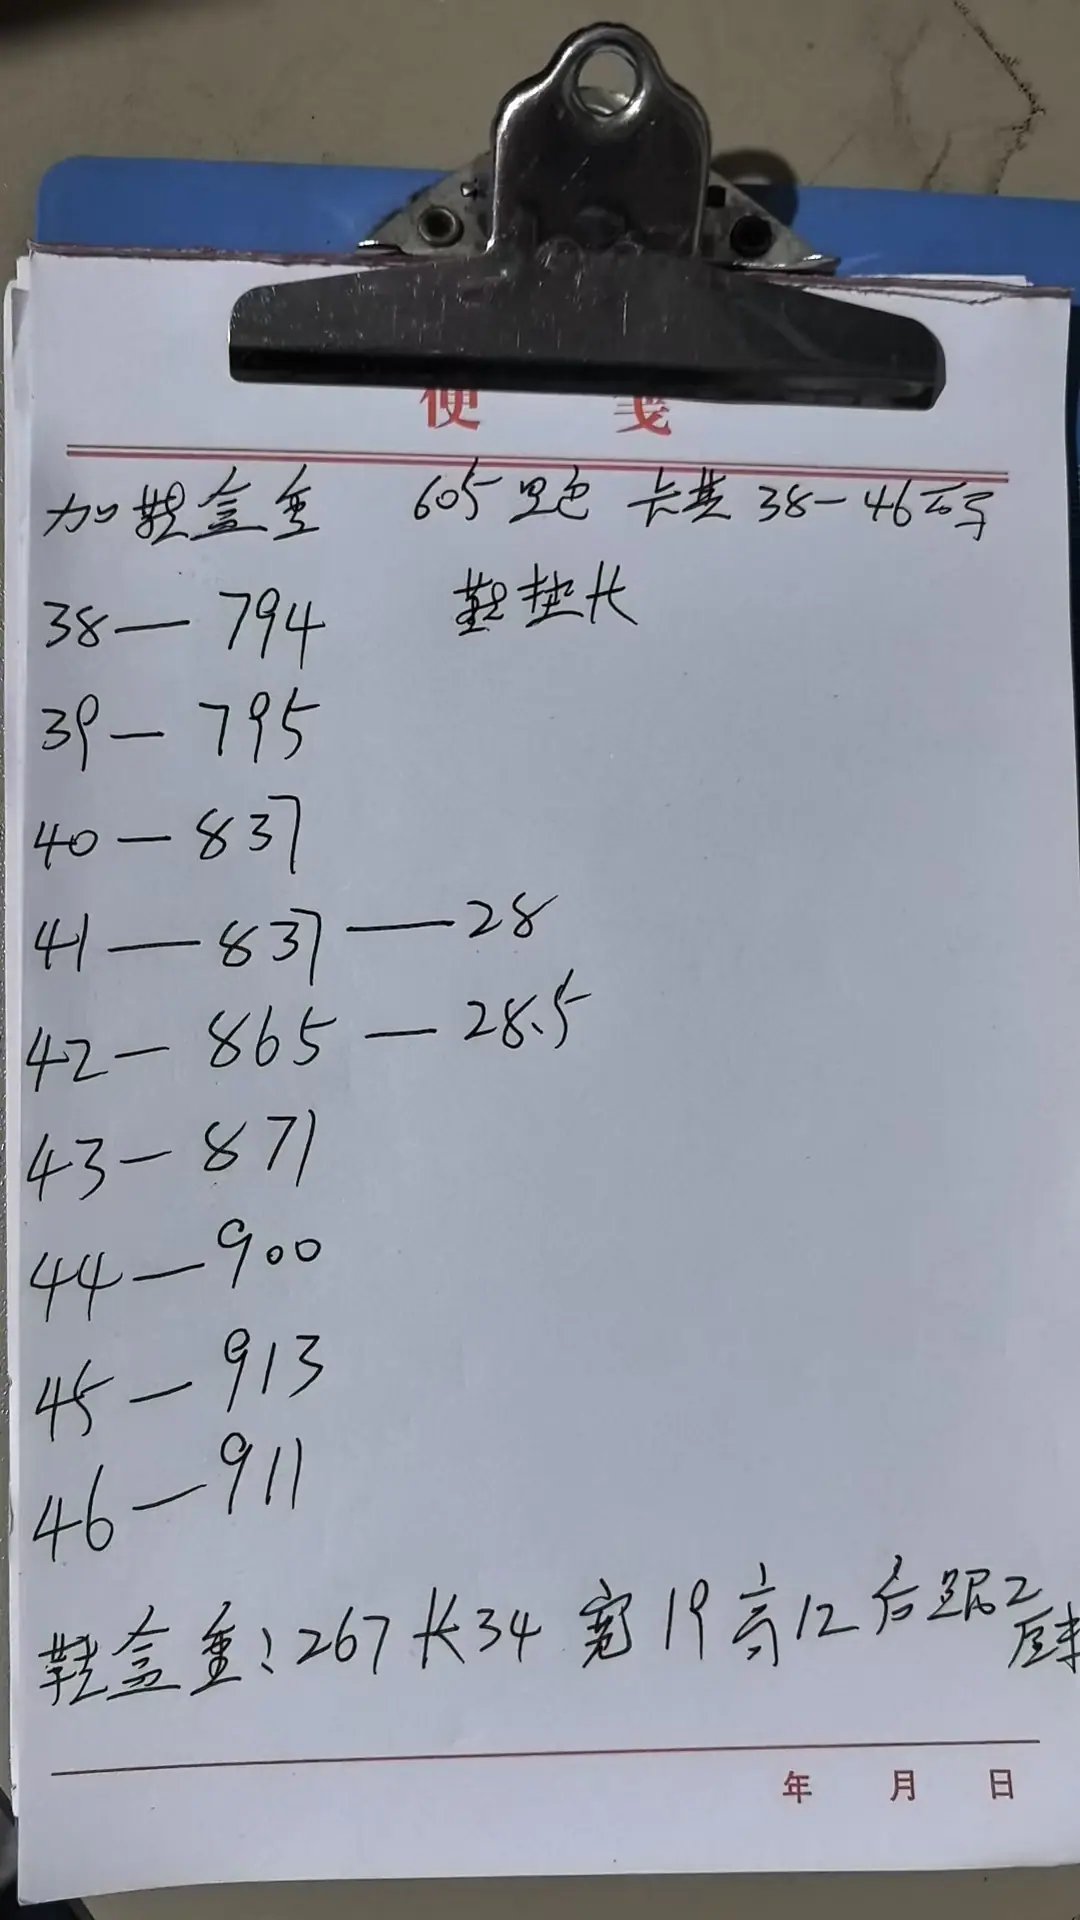 便 笺
加鞋盒重 605黑色 卡其 38-46码
38—794 鞋垫长
39—795
40—837
41—837—28
42—865—28.5
43—871
44—900
45—913
46—911
鞋盒重:267 长34 宽19 高12 后跟2
年 月 日